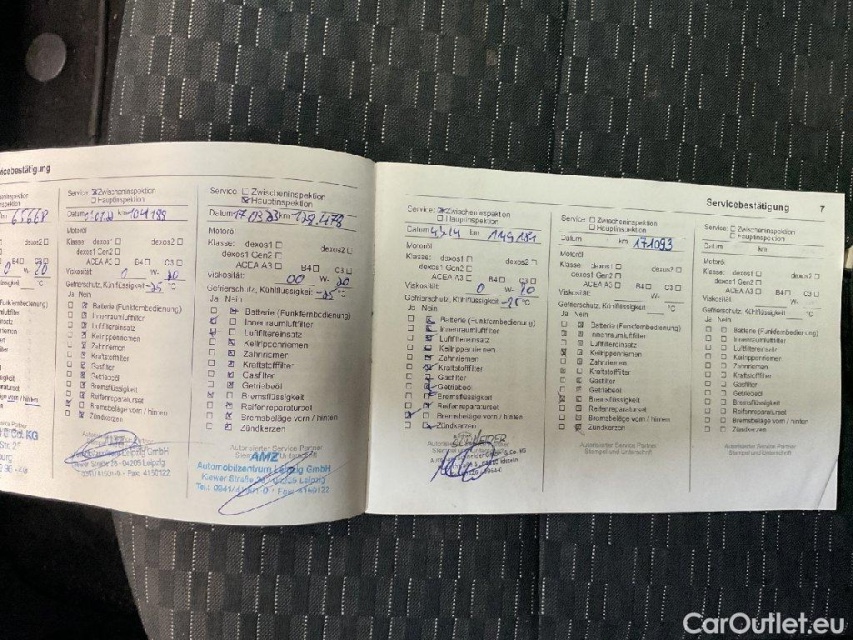 Servicebestätigung
65668
dexos2
Service: Zwischeninspektion
Hauptinspektion
Datum km 104199
Motoröl
Klasse: dexos1 dexos2
dexos1 Gen2
ACEA A3 B4 C3
Viskosität: 0 W- 20
Gefrierschutz, Kühlflüssigkeit -25 °C
Ja Nein
Batterie (Funkfernbedienung)
Innenraumluftfilter
Luftfiltereinsatz
Keilrippenriemen
Zahnriemen
Kraftstofffilter
Gasfilter
Getriebeöl
Bremsflüssigkeit
Reifenreparaturset
Bremsbeläge vorn / hinten
Zündkerzen
04205 Leipzig
Service: Zwischeninspektion
Hauptinspektion
Datum 17.03.23 km 129.478
Motoröl
Klasse: dexos1 dexos2
dexos1 Gen2
ACEA A3 B4 C3
Viskosität: 00 W- 20
Gefrierschutz, Kühlflüssigkeit -25 °C
Ja Nein
Batterie (Funkfernbedienung)
Innenraumluftfilter
Luftfiltereinsatz
Keilrippenriemen
Zahnriemen
Kraftstofffilter
Gasfilter
Getriebeöl
Bremsflüssigkeit
Reifenreparaturset
Bremsbeläge vorn / hinten
Zündkerzen
Autorisierter Service Partner
AMZ
Automobilzentrum Leipzig GmbH
Servicebestätigung 7
Service: Zwischeninspektion
Hauptinspektion
Datum km 149181
Motoröl
Klasse: dexos1 dexos2
dexos1 Gen2
ACEA A3 B4 C3
Viskosität: 0 W- 20
Gefrierschutz, Kühlflüssigkeit -25 °C
Ja Nein
Batterie (Funkfernbedienung)
Innenraumluftfilter
Luftfiltereinsatz
Keilrippenriemen
Zahnriemen
Kraftstofffilter
Gasfilter
Getriebeöl
Bremsflüssigkeit
Reifenreparaturset
Bremsbeläge vorn / hinten
Zündkerzen
Service: Zwischeninspektion
Hauptinspektion
Datum km 171093
Motoröl
Klasse: dexos1 dexos2
dexos1 Gen2
ACEA A3 B4 C3
Viskosität: W-
Gefrierschutz, Kühlflüssigkeit °C
Ja Nein
Batterie (Funkfernbedienung)
Innenraumluftfilter
Luftfiltereinsatz
Keilrippenriemen
Zahnriemen
Kraftstofffilter
Gasfilter
Getriebeöl
Bremsflüssigkeit
Reifenreparaturset
Bremsbeläge vorn / hinten
Zündkerzen
Autorisierter Service Partner
Stempel und Unterschrift
Service: Zwischeninspektion
Hauptinspektion
Datum km
Motoröl
Klasse: dexos1 dexos2
dexos1 Gen2
ACEA A3 B4 C3
Viskosität: W-
Gefrierschutz, Kühlflüssigkeit °C
Ja Nein
Batterie (Funkfernbedienung)
Innenraumluftfilter
Luftfiltereinsatz
Keilrippenriemen
Zahnriemen
Kraftstofffilter
Gasfilter
Getriebeöl
Bremsflüssigkeit
Reifenreparaturset
Bremsbeläge vorn / hinten
Zündkerzen
Autorisierter Service Partner
Stempel und Unterschrift
CarOutlet.eu